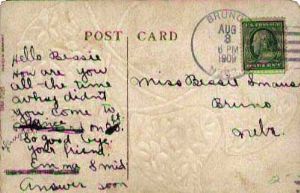 POST CARD
BRUNO
AUG
8
6 PM
1909
Hello Bessie
How are you
all the time
why didn't
you come to
on
So good bye
your friend.
Emma
Answer soon
Miss Bessie
Bruno
Nebr.